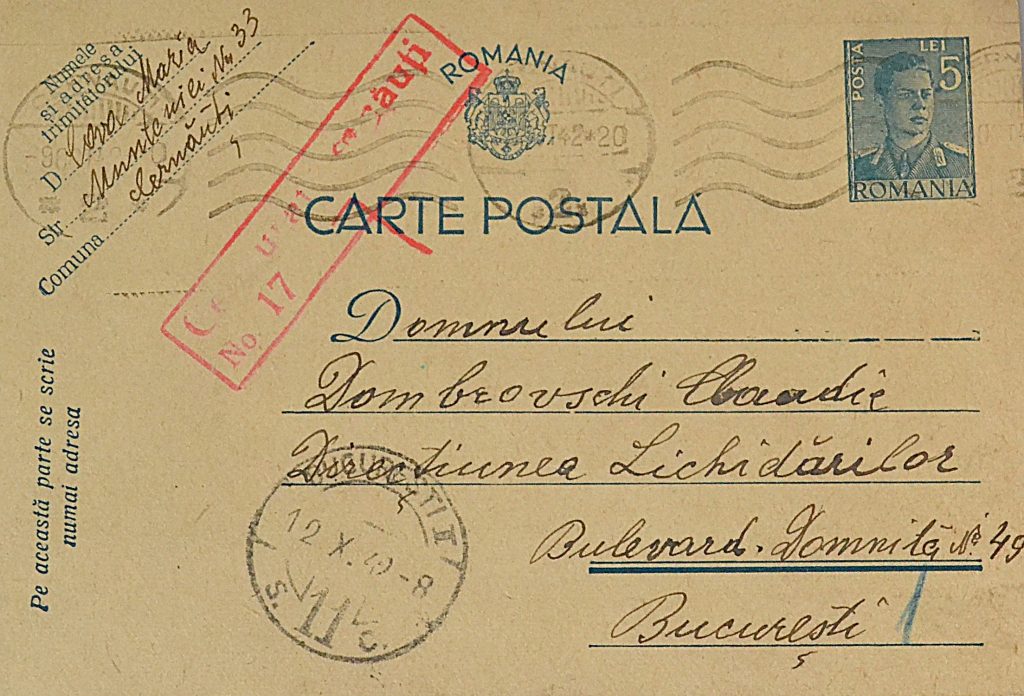 Numele
și adresa
trimițătorului
D Maria
Str. Munteniei Nr 33
Comuna Cernăuți
Cenzurat Cernăuți
No. 17
ROMANIA
CARTE POSTALA
POSTA LEI 5
ROMANIA
Domnului
Dombrovschi
Direcțiunea Lichidărilor
Bulevard. Domniță No 49
București
Pe această parte se scrie
numai adresa
BUCUREȘTI II
12 X. 42 - 8